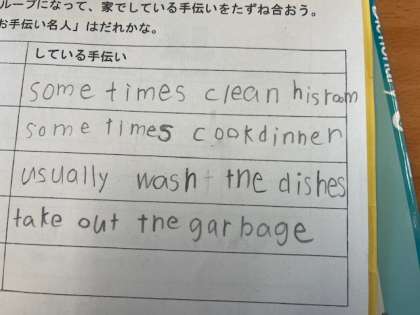 ループになって、家でしている手伝いをたずね合おう。
お手伝い名人」はだれかな。
している手伝い
some times clean his room
some times cook dinner
usually wash the dishes
take out the garbage